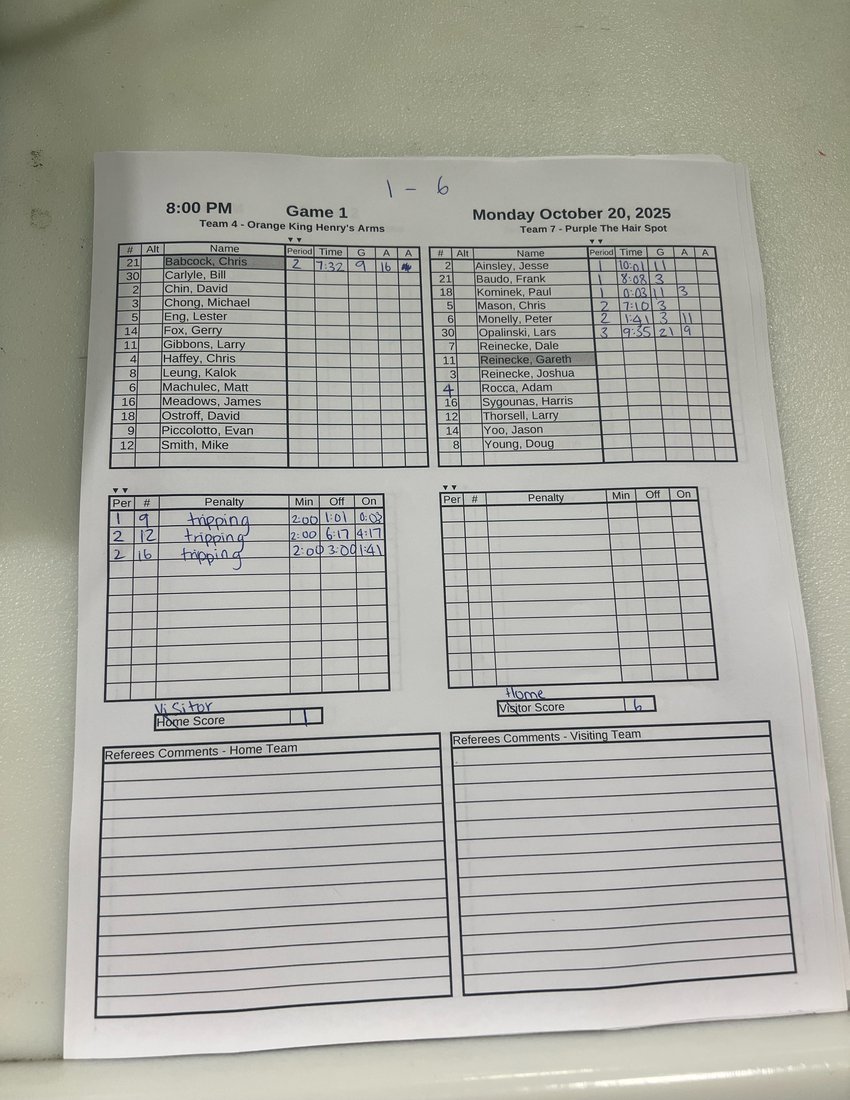 1 - 6
8:00 PM Game 1 Monday October 20, 2025
Team 4 - Orange King Henry's Arms Team 7 - Purple The Hair Spot
# Alt Name Period Time G A A
21 Babcock, Chris 2 7:32 9 16
30 Carlyle, Bill
2 Chin, David
3 Chong, Michael
5 Eng, Lester
14 Fox, Gerry
11 Gibbons, Larry
4 Haffey, Chris
8 Leung, Kalok
6 Machulec, Matt
16 Meadows, James
18 Ostroff, David
9 Piccolotto, Evan
12 Smith, Mike
# Alt Name Period Time G A A
2 Ainsley, Jesse 1 10:01 11
21 Baudo, Frank 1 8:08 3
18 Kominek, Paul 1 0:03 11 3
5 Mason, Chris 2 7:10 3
6 Monelly, Peter 2 1:41 3 11
30 Opalinski, Lars 3 9:35 21 9
7 Reinecke, Dale
11 Reinecke, Gareth
3 Reinecke, Joshua
4 Rocca, Adam
16 Sygounas, Harris
12 Thorsell, Larry
14 Yoo, Jason
8 Young, Doug
Per # Penalty Min Off On
1 9 tripping 2:00 1:01 0:03
2 12 tripping 2:00 6:17 4:17
2 16 tripping 2:00 3:00 1:41
Per # Penalty Min Off On
Visitor
Home Score 1
Home
Visitor Score 6
Referees Comments - Home Team
Referees Comments - Visiting Team